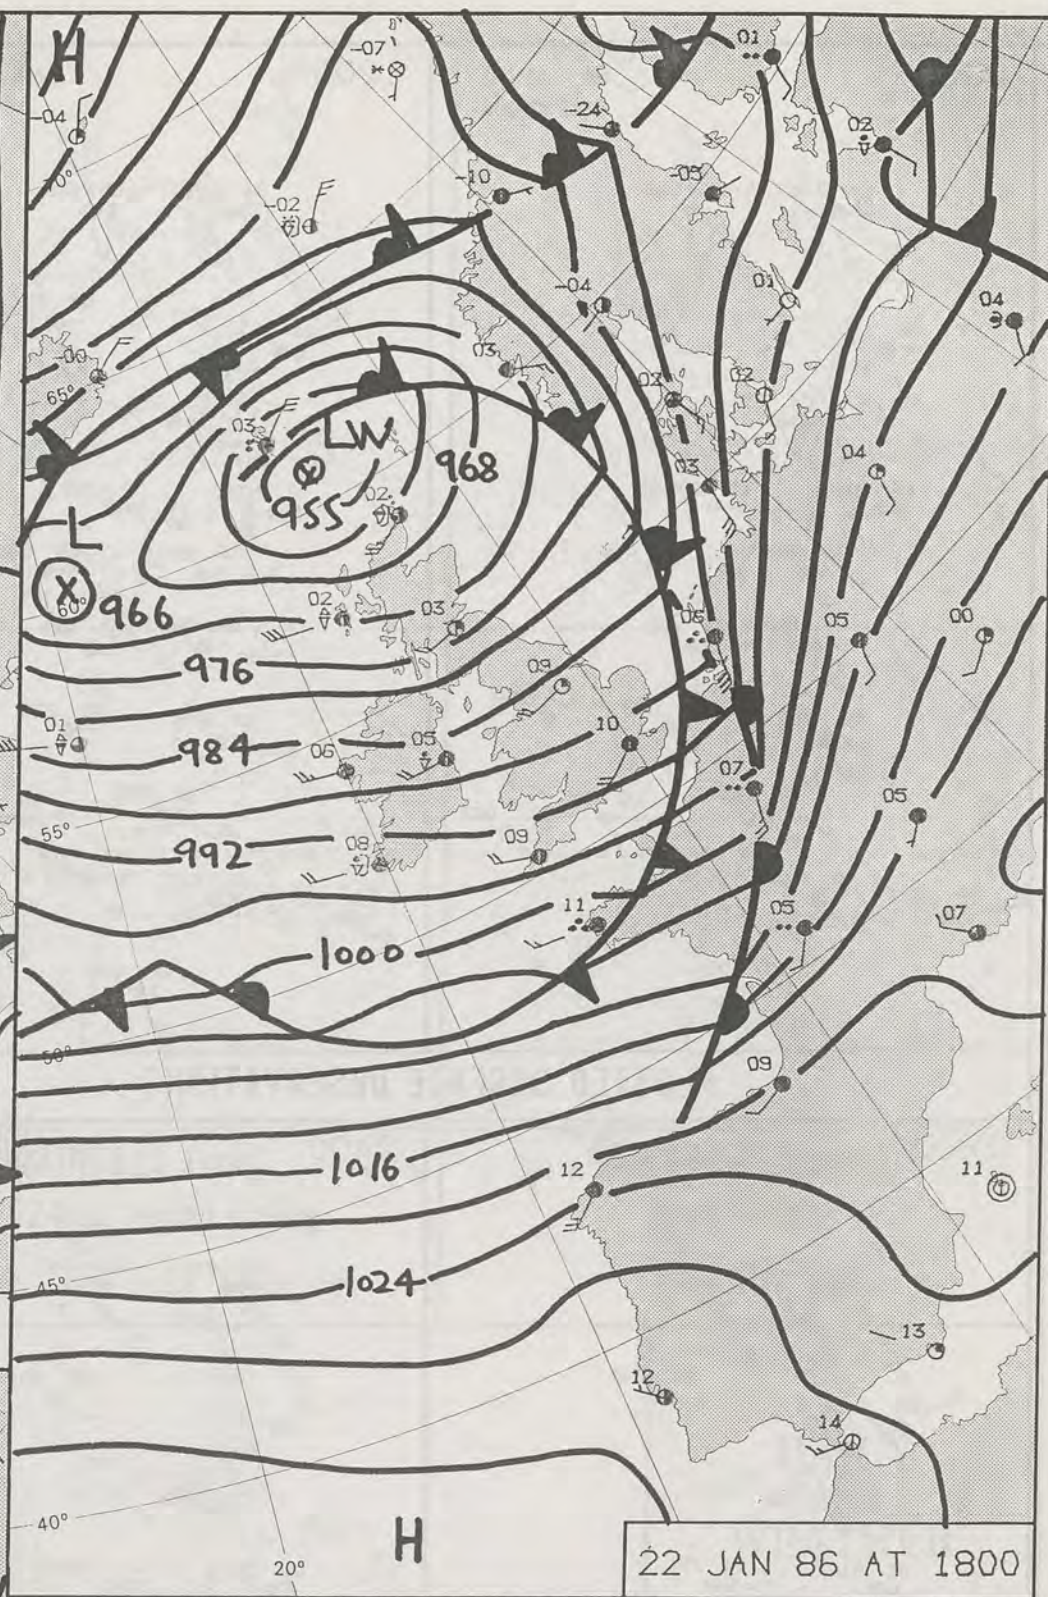 H
-07
01
-04
-24
02
70°
-10
-05
-02
-04
01
04
-00
03
65°
02
02
03
LW
04
968
03
955
02
L
X
60°
966
02
03
06
05
00
976
09
01
984
06
05
10
07
05
55°
992
08
09
11
05
07
1000
50°
09
1016
12
11
45°
1024
13
12
14
40°
H
20°
22 JAN 86 AT 1800